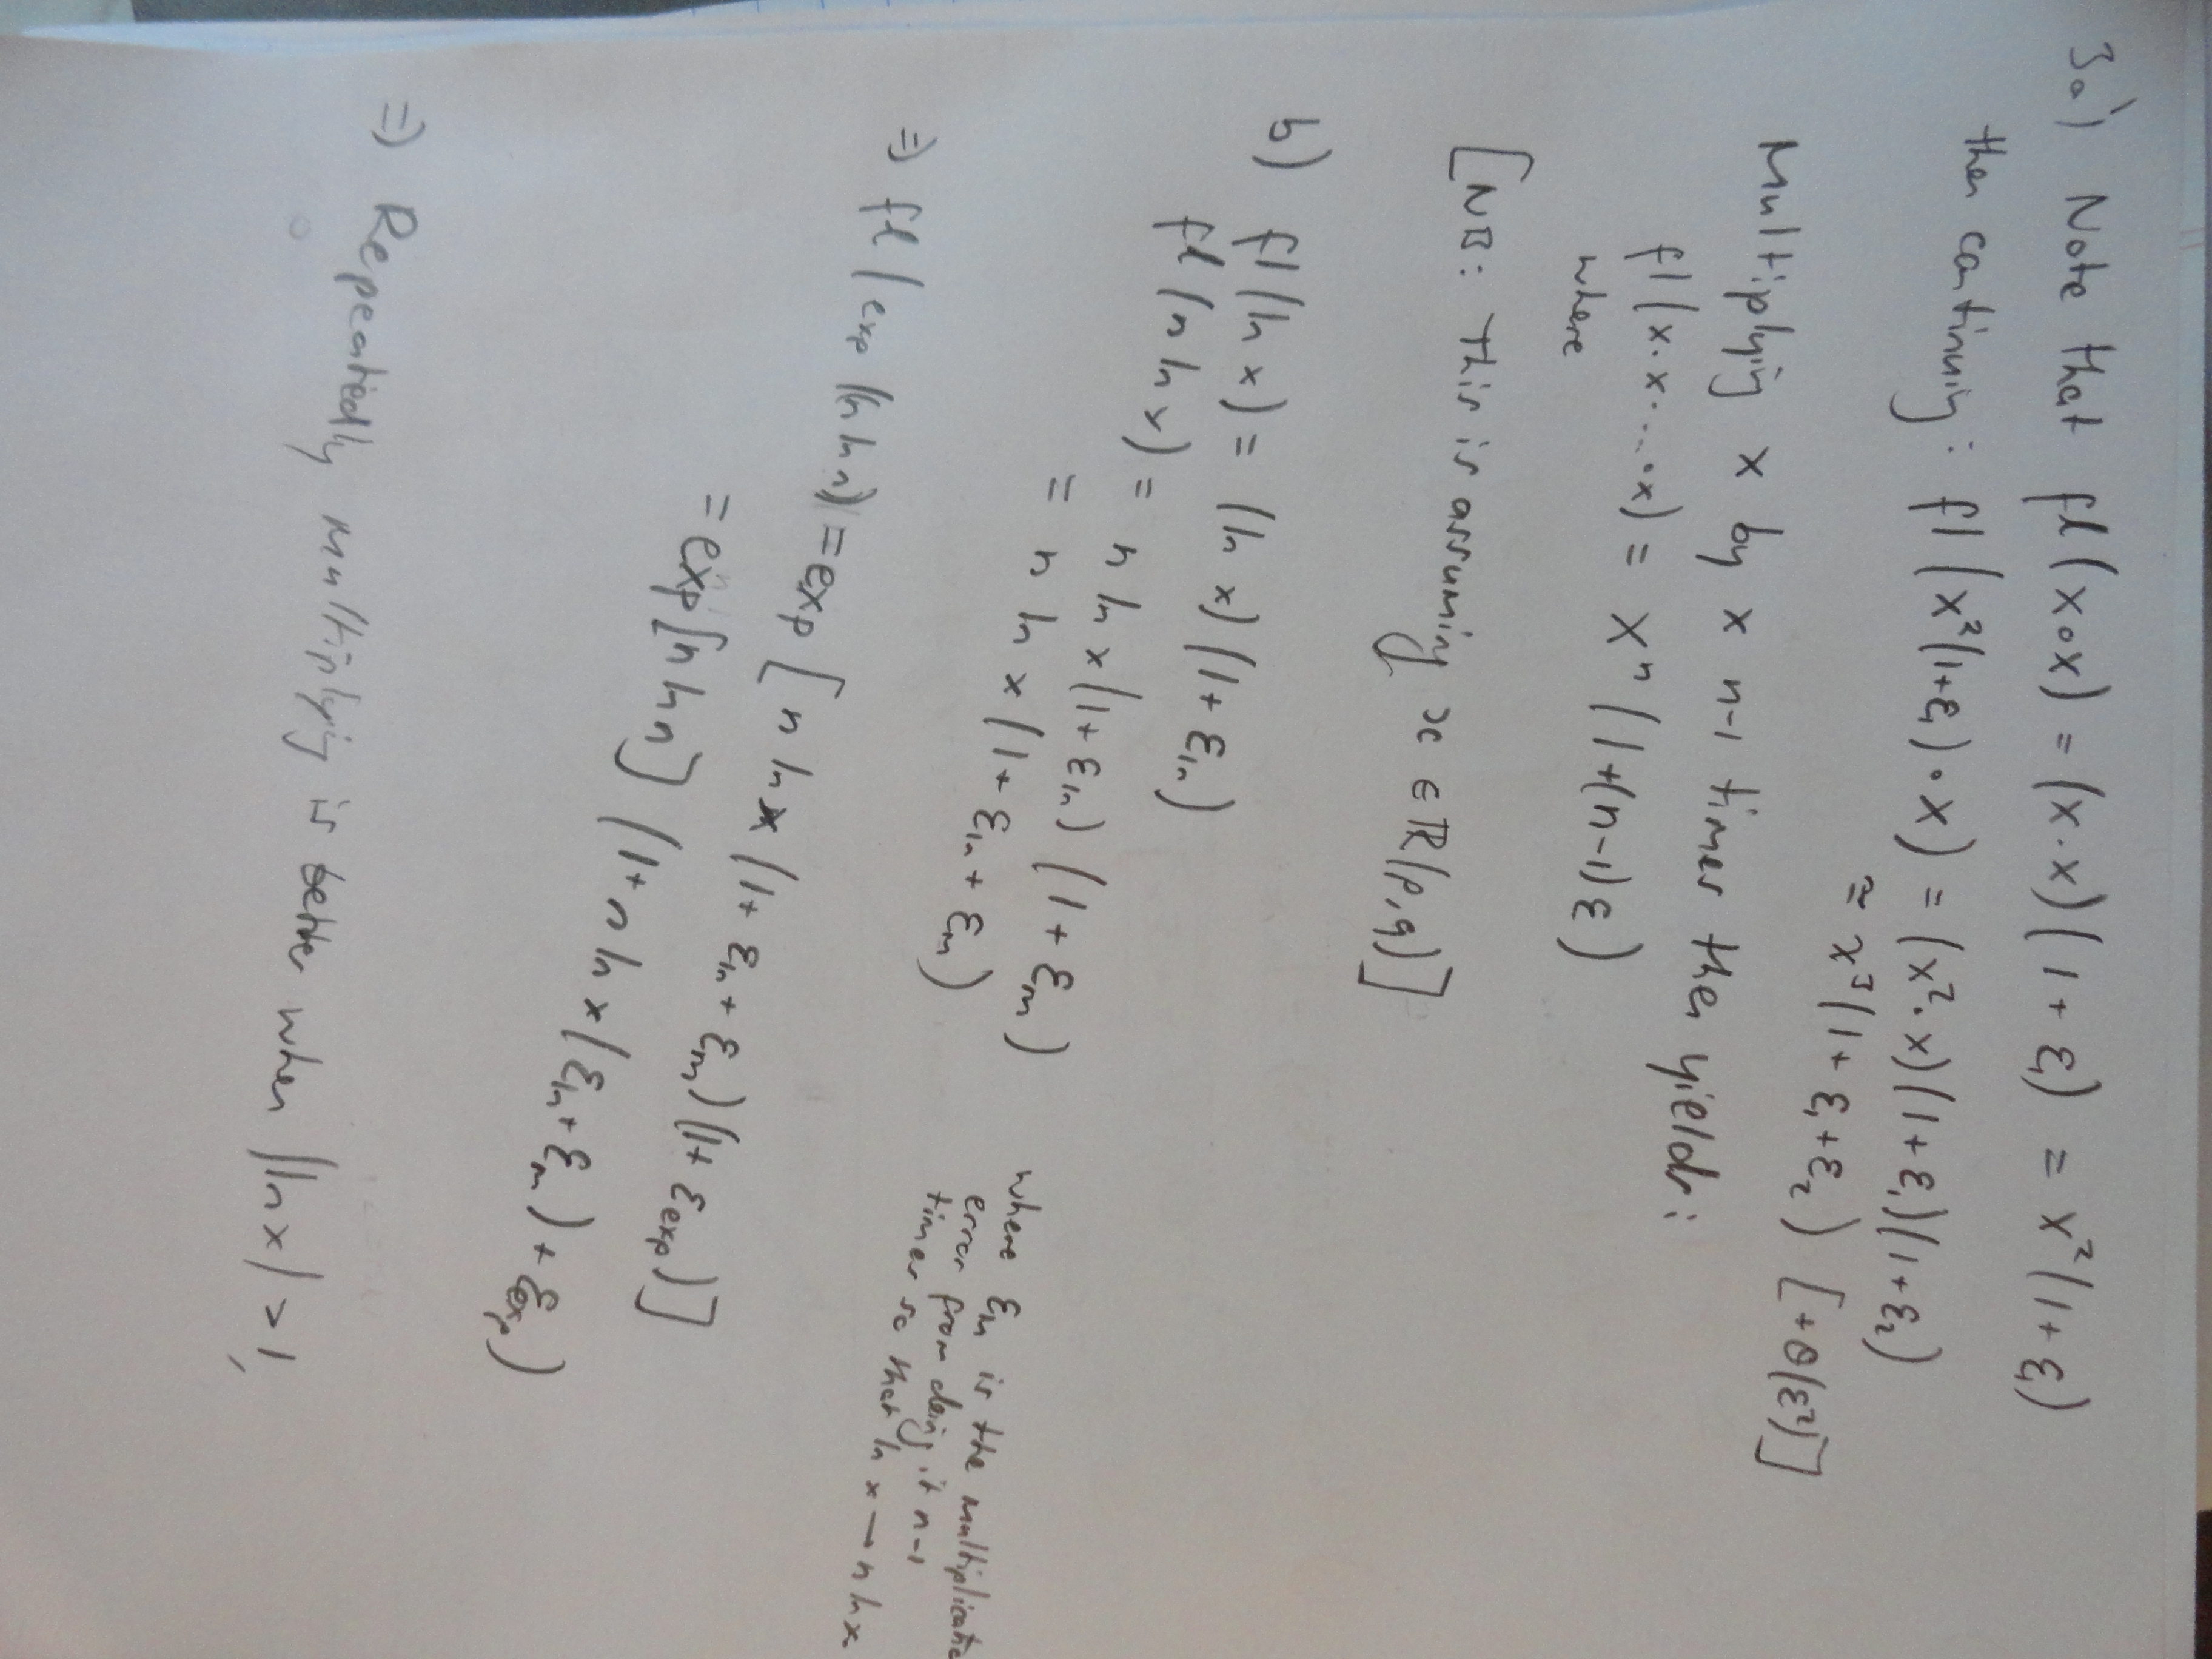 3a) Note that fl(x∘x) = (x·x)(1+ε₁) = x²(1+ε₁)
then continuing: fl(x²(1+ε₁)∘x) = (x²·x)(1+ε₁)(1+ε₂)
≈ x³(1+ε₁+ε₂) [+O(ε²)]
Multiplying x by x n-1 times then yields:
fl(x·x·...·x) = xⁿ(1+(n-1)ε)
where
[NB: This is assuming x ∈ ℝ(p,q)]
b) fl(ln x) = (ln x)(1+ε_ln)
fl(n ln x) = n ln x(1+ε_ln)(1+ε_m)
= n ln x(1+ε_ln+ε_m)
where ε_m is the multiplicative
error from doing it n-1
times so that ln x → n ln x
⇒ fl(exp(n ln n)) = exp[n ln x(1+ε_ln+ε_m)(1+ε_exp)]
= exp[n ln n](1+n ln x(ε_ln+ε_m)+ε_exp)
⇒ Repeatedly multiplying is better when |ln x| > 1,